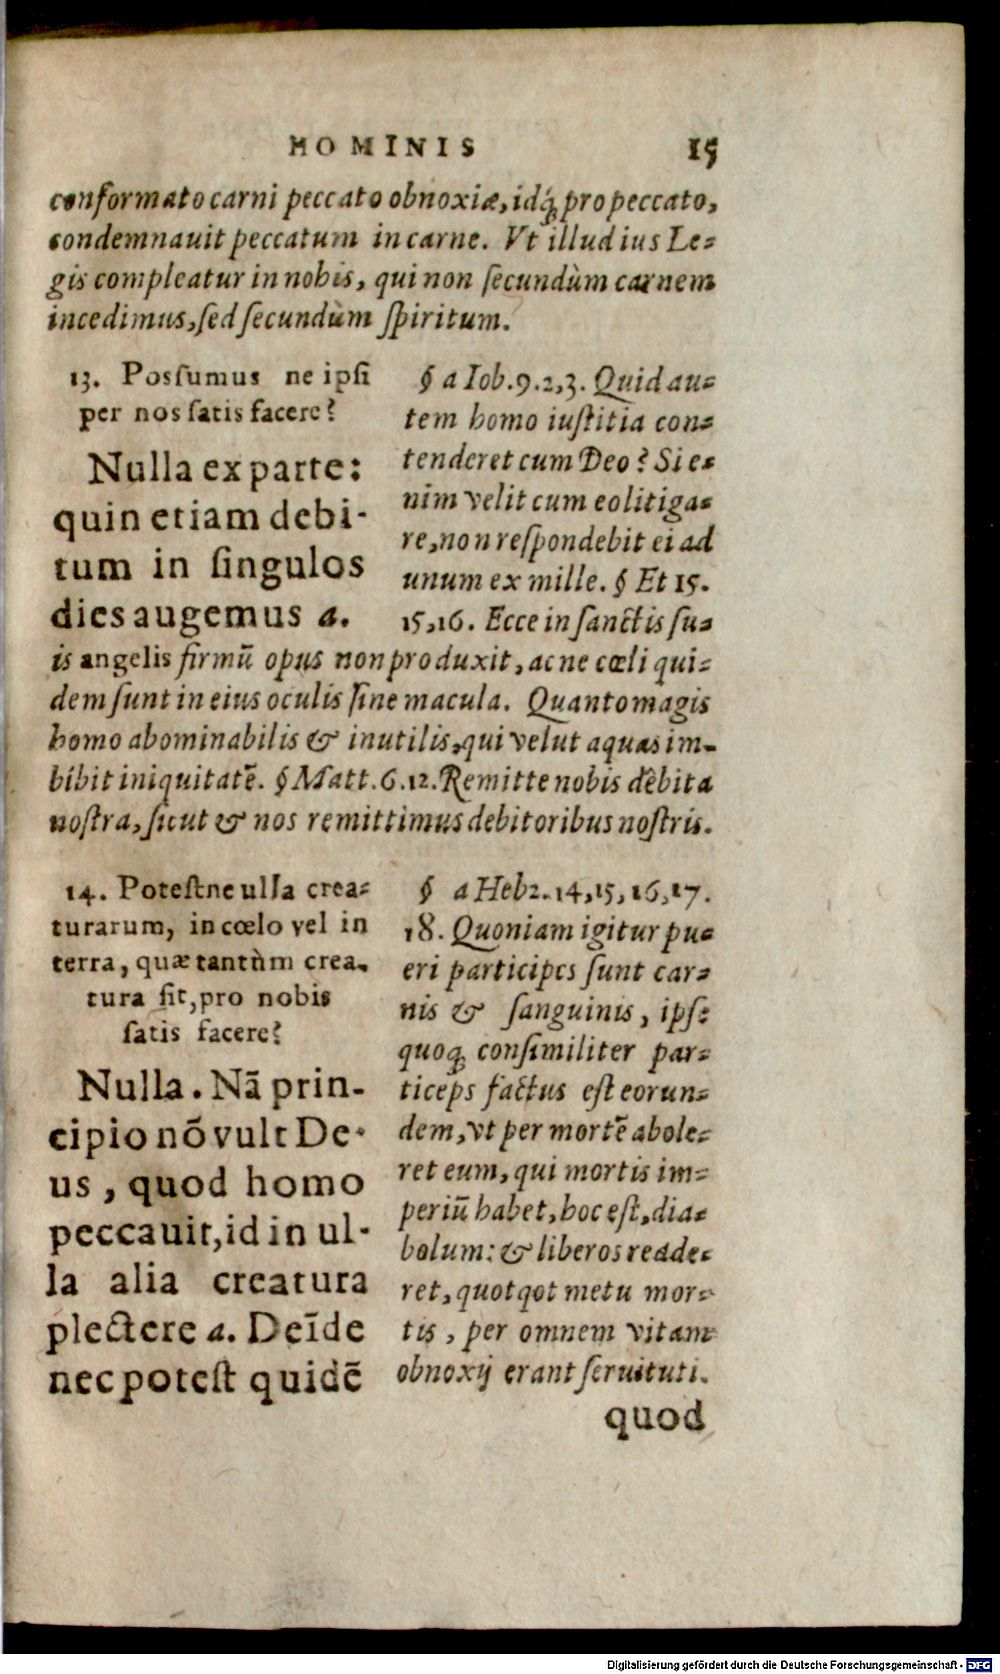 HOMINIS 15
conformato carni peccato obnoxiæ, idq́; pro peccato,
condemnauit peccatum in carne. Vt illud ius Le-
gis compleatur in nobis, qui non ſecundùm carnem
incedimus, ſed ſecundùm ſpiritum.
13. Posſumus ne ipſi
per nos ſatis facere?
Nulla ex parte:
quin etiam debi-
tum in ſingulos
dies augemus a.
§ a Iob. 9. 2, 3. Quid au-
tem homo iuſtitia con-
tenderet cum Deo? Si e-
nim velit cum eo litiga-
re, non reſpondebit ei ad
unum ex mille. § Et 15.
15, 16. Ecce in ſanctis ſu-
is angelis firmũ opus non produxit, ac ne cœli qui-
dem ſunt in eius oculis ſine macula. Quanto magis
homo abominabilis & inutilis, qui velut aquas im-
bibit iniquitatẽ. § Matt. 6. 12. Remitte nobis debita
noſtra, ſicut & nos remittimus debitoribus noſtris.
14. Poteſtne ulla crea-
turarum, in cœlo vel in
terra, quæ tantùm crea-
tura ſit, pro nobis
ſatis facere?
Nulla. Nã prin-
cipio nõ vult De-
us, quod homo
peccauit, id in ul-
la alia creatura
plectere a. Deĩde
nec poteſt quidẽ
§ a Heb 2. 14, 15, 16, 17.
18. Quoniam igitur pu-
eri participes ſunt car-
nis & ſanguinis, ipſe
quoq; conſimiliter par-
ticeps factus eſt eorun-
dem, vt per mortẽ abole-
ret eum, qui mortis im-
periũ habet, hoc eſt, dia-
bolum: & liberos redde-
ret, quotqot metu mor-
tis, per omnem vitam
obnoxij erant ſeruituti.
quod
Digitalisierung gefördert durch die Deutsche Forschungsgemeinschaft - DFG